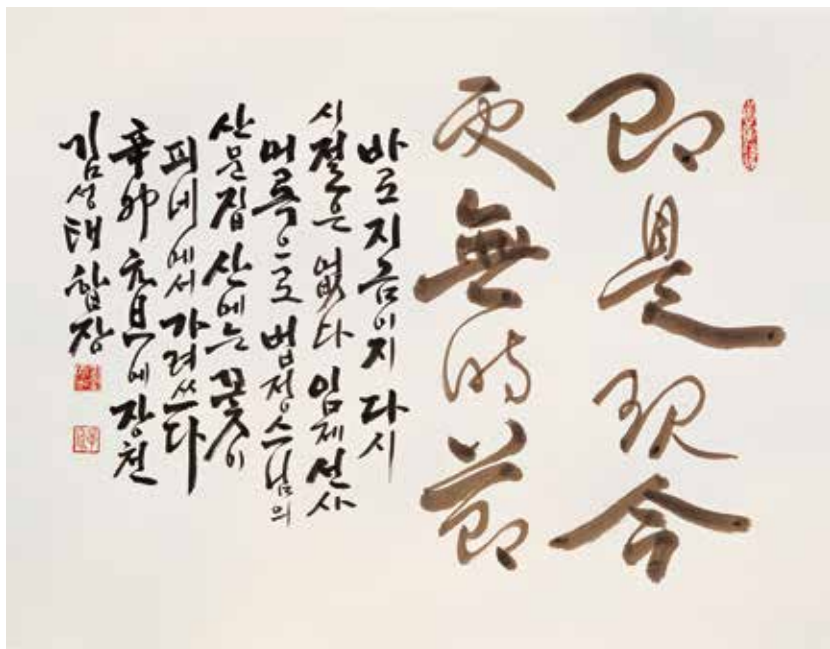 即是現今
更無時節
바로지금이지 다시
시절은 없다 임제선사
어록으로 법정스님의
산문집 산에는 꽃이
피네에서 가려쓰다
辛卯 元旦에 장천
김성태 합장